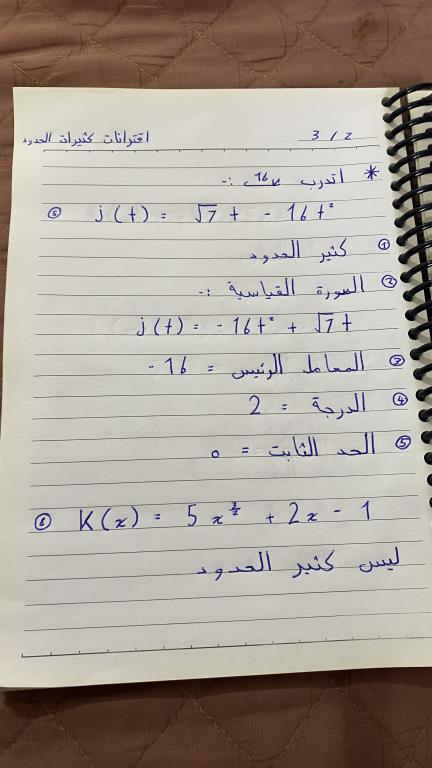 اقترانات كثيرات الحدود 3/2
* اتدرب ص 16 :-
⑤ j(t) = √7 t - 16t²
① كثير الحدود
② الصورة القياسية :-
j(t) = - 16t² + √7 t
③ المعامل الرئيس = 16 -
④ الدرجة = 2
⑤ الحد الثابت = 0
⑥ K(x) = 5x^{3/2} + 2x - 1
ليس كثير الحدود